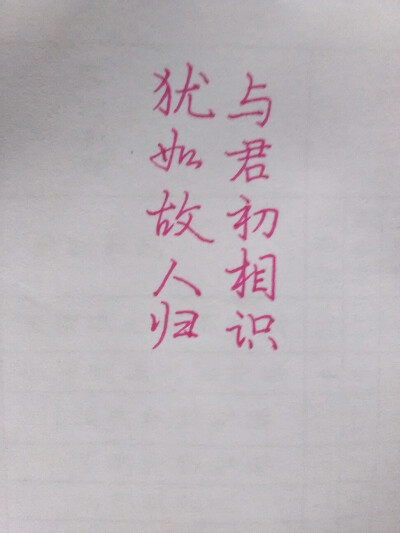 与君初相识
犹如故人归